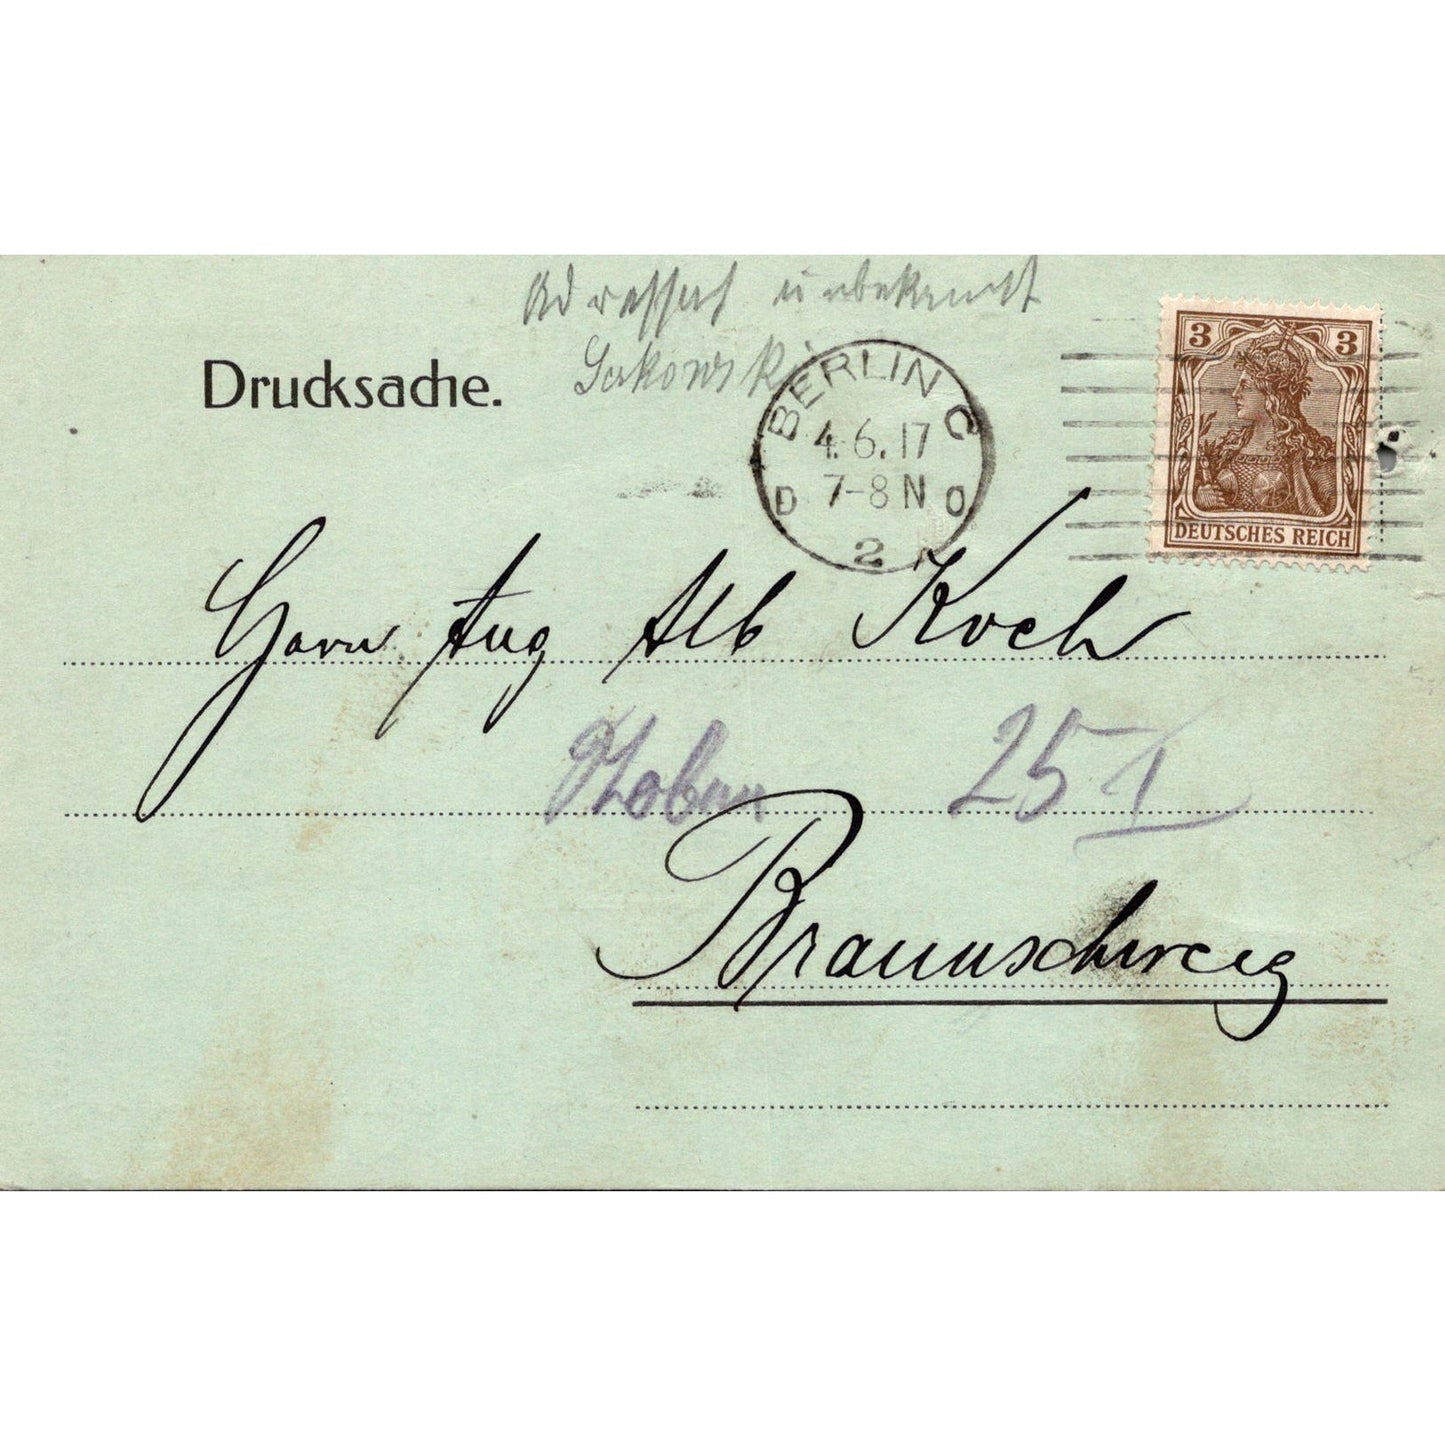 Adressat unbekannt
Sakowski
Drucksache.
BERLIN C
4.6.17
7-8 N
D O
2
3 3
DEUTSCHES REICH
Herrn Aug Alb Koch
25 I
Braunschweig